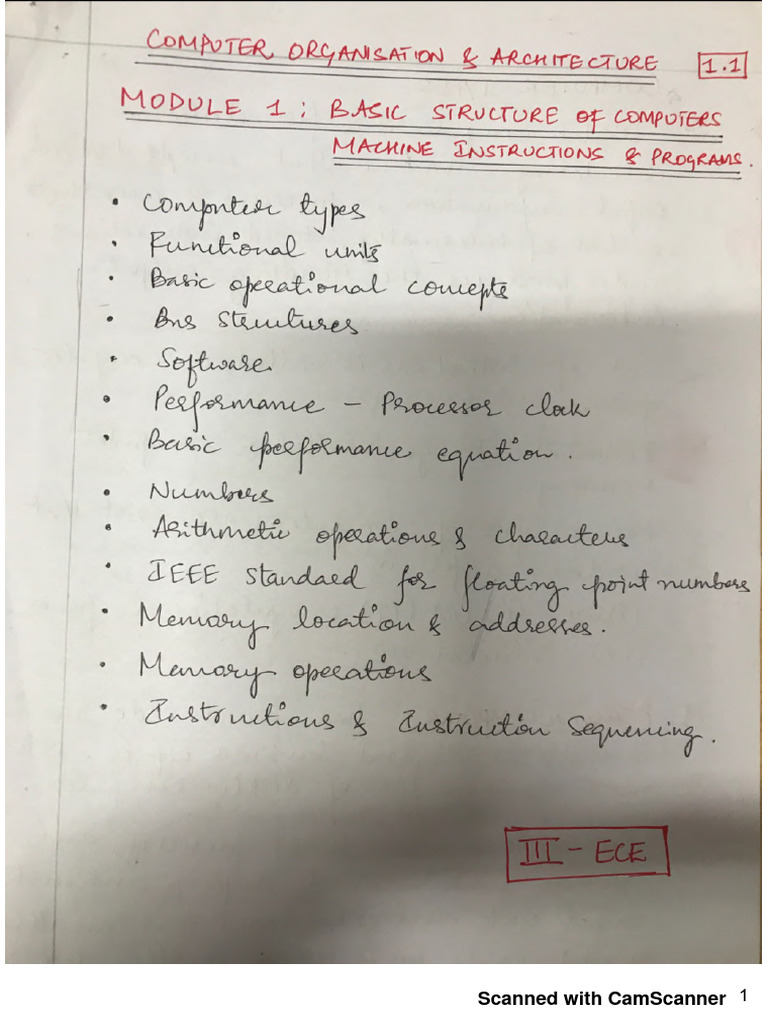 COMPUTER ORGANISATION & ARCHITECTURE 1.1
MODULE 1 : BASIC STRUCTURE OF COMPUTERS
MACHINE INSTRUCTIONS & PROGRAMS.
• Computer types
• Functional units
• Basic operational concepts
• Bus structures
• Software
• Performance - Processor clock
• Basic performance equation.
• Numbers
• Arithmetic operations & characters
• IEEE standard for floating point numbers
• Memory location & addresses.
• Memory operations
• Instructions & Instruction Sequencing.
III - ECE
Scanned with CamScanner 1